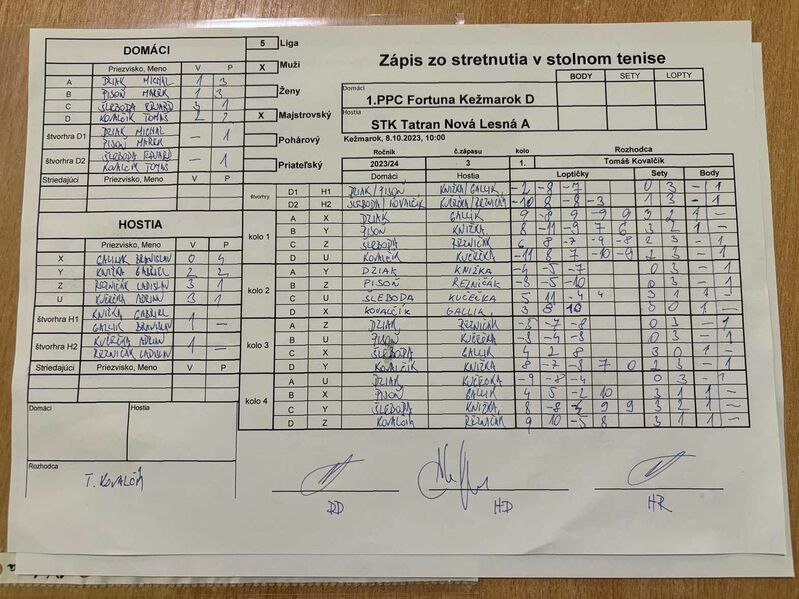 DOMÁCI
5 Liga
X Muži
Ženy
X Majstrovský
Pohárový
Priateľský
Zápis zo stretnutia v stolnom tenise
BODY SETY LOPTY
Domáci
1.PPC Fortuna Kežmarok D
Hostia
STK Tatran Nová Lesná A
Kežmarok, 8.10.2023, 10:00
Ročník č.zápasu kolo Rozhodca
2023/24 3 1. Tomáš Kovalčík
Priezvisko, Meno V P
A DZIAK MICHAL 1 3
B PISOŇ MAREK 1 3
C ŠLEBODA EDUARD 3 1
D KOVALČÍK TOMÁŠ 2 2
štvorhra D1 DZIAK MICHAL – 1
PISOŇ MAREK
štvorhra D2 ŠLEBODA EDUARD – 1
KOVALČÍK TOMÁŠ
Striedajúci Priezvisko, Meno V P
HOSTIA
Priezvisko, Meno V P
X GALLIK BRANISLAV 0 4
Y KNIŽKA GABRIEL 2 2
Z REZNIČÁK LADISLAV 3 1
U KUČERKA ADRIÁN 3 1
štvorhra H1 KNIŽKA GABRIEL 1 –
GALLIK BRANISLAV
štvorhra H2 KUČERKA ADRIÁN 1 –
REZNIČÁK LADISLAV
Striedajúci Priezvisko, Meno V P
Domáci Hostia
Rozhodca
T. KOVALČÍK
Domáci Hostia Loptičky Sety Body
štvorhry
D1 H1 DZIAK/PISOŇ KNIŽKA/GALLIK -2 -8 -7 0 3 – 1
D2 H2 ŠLEBODA/KOVALČÍK KUČERKA/REZNIČÁK -10 8 -8 -3 1 3 – 1
kolo 1
A X DZIAK GALLIK 9 -8 9 -9 9 3 2 1 –
B Y PISOŇ KNIŽKA 8 -11 -9 7 6 3 2 1 –
C Z ŠLEBODA REZNIČÁK 6 8 -7 -9 -8 2 3 – 1
D U KOVALČÍK KUČERKA -11 8 7 -10 -9 2 3 – 1
kolo 2
A Y DZIAK KNIŽKA -4 -5 -7 0 3 – 1
B Z PISOŇ REZNIČÁK -3 -5 -10 0 3 – 1
C U ŠLEBODA KUČERKA 5 11 -4 4 3 1 1 –
D X KOVALČÍK GALLIK 3 8 10
kolo 3
A Z DZIAK REZNIČÁK -5 -7 -8 0 3 – 1
B U PISOŇ KUČERKA -3 -4 -3 0 3 – 1
C X ŠLEBODA GALLIK 4 2 8 3 0 1 –
D Y KOVALČÍK KNIŽKA 8 -7 -8 7
kolo 4
A U DZIAK KUČERKA -9 -8 -4 0 3 – 1
B X PISOŇ GALLIK 4 5 -2 10 3 1 1 –
C Y ŠLEBODA KNIŽKA 8 -8 9 9 3 2 1 –
D Z KOVALČÍK REZNIČÁK 9 10 -5 8 3 1 1 –
DD HD HR